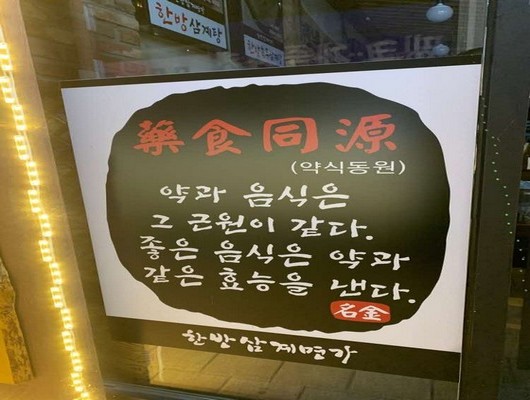 한방삼계탕
藥食同源
(약식동원)
약과 음식은
그 근원이 같다.
좋은 음식은 약과
같은 효능을 낸다.
名金
한방삼계명가